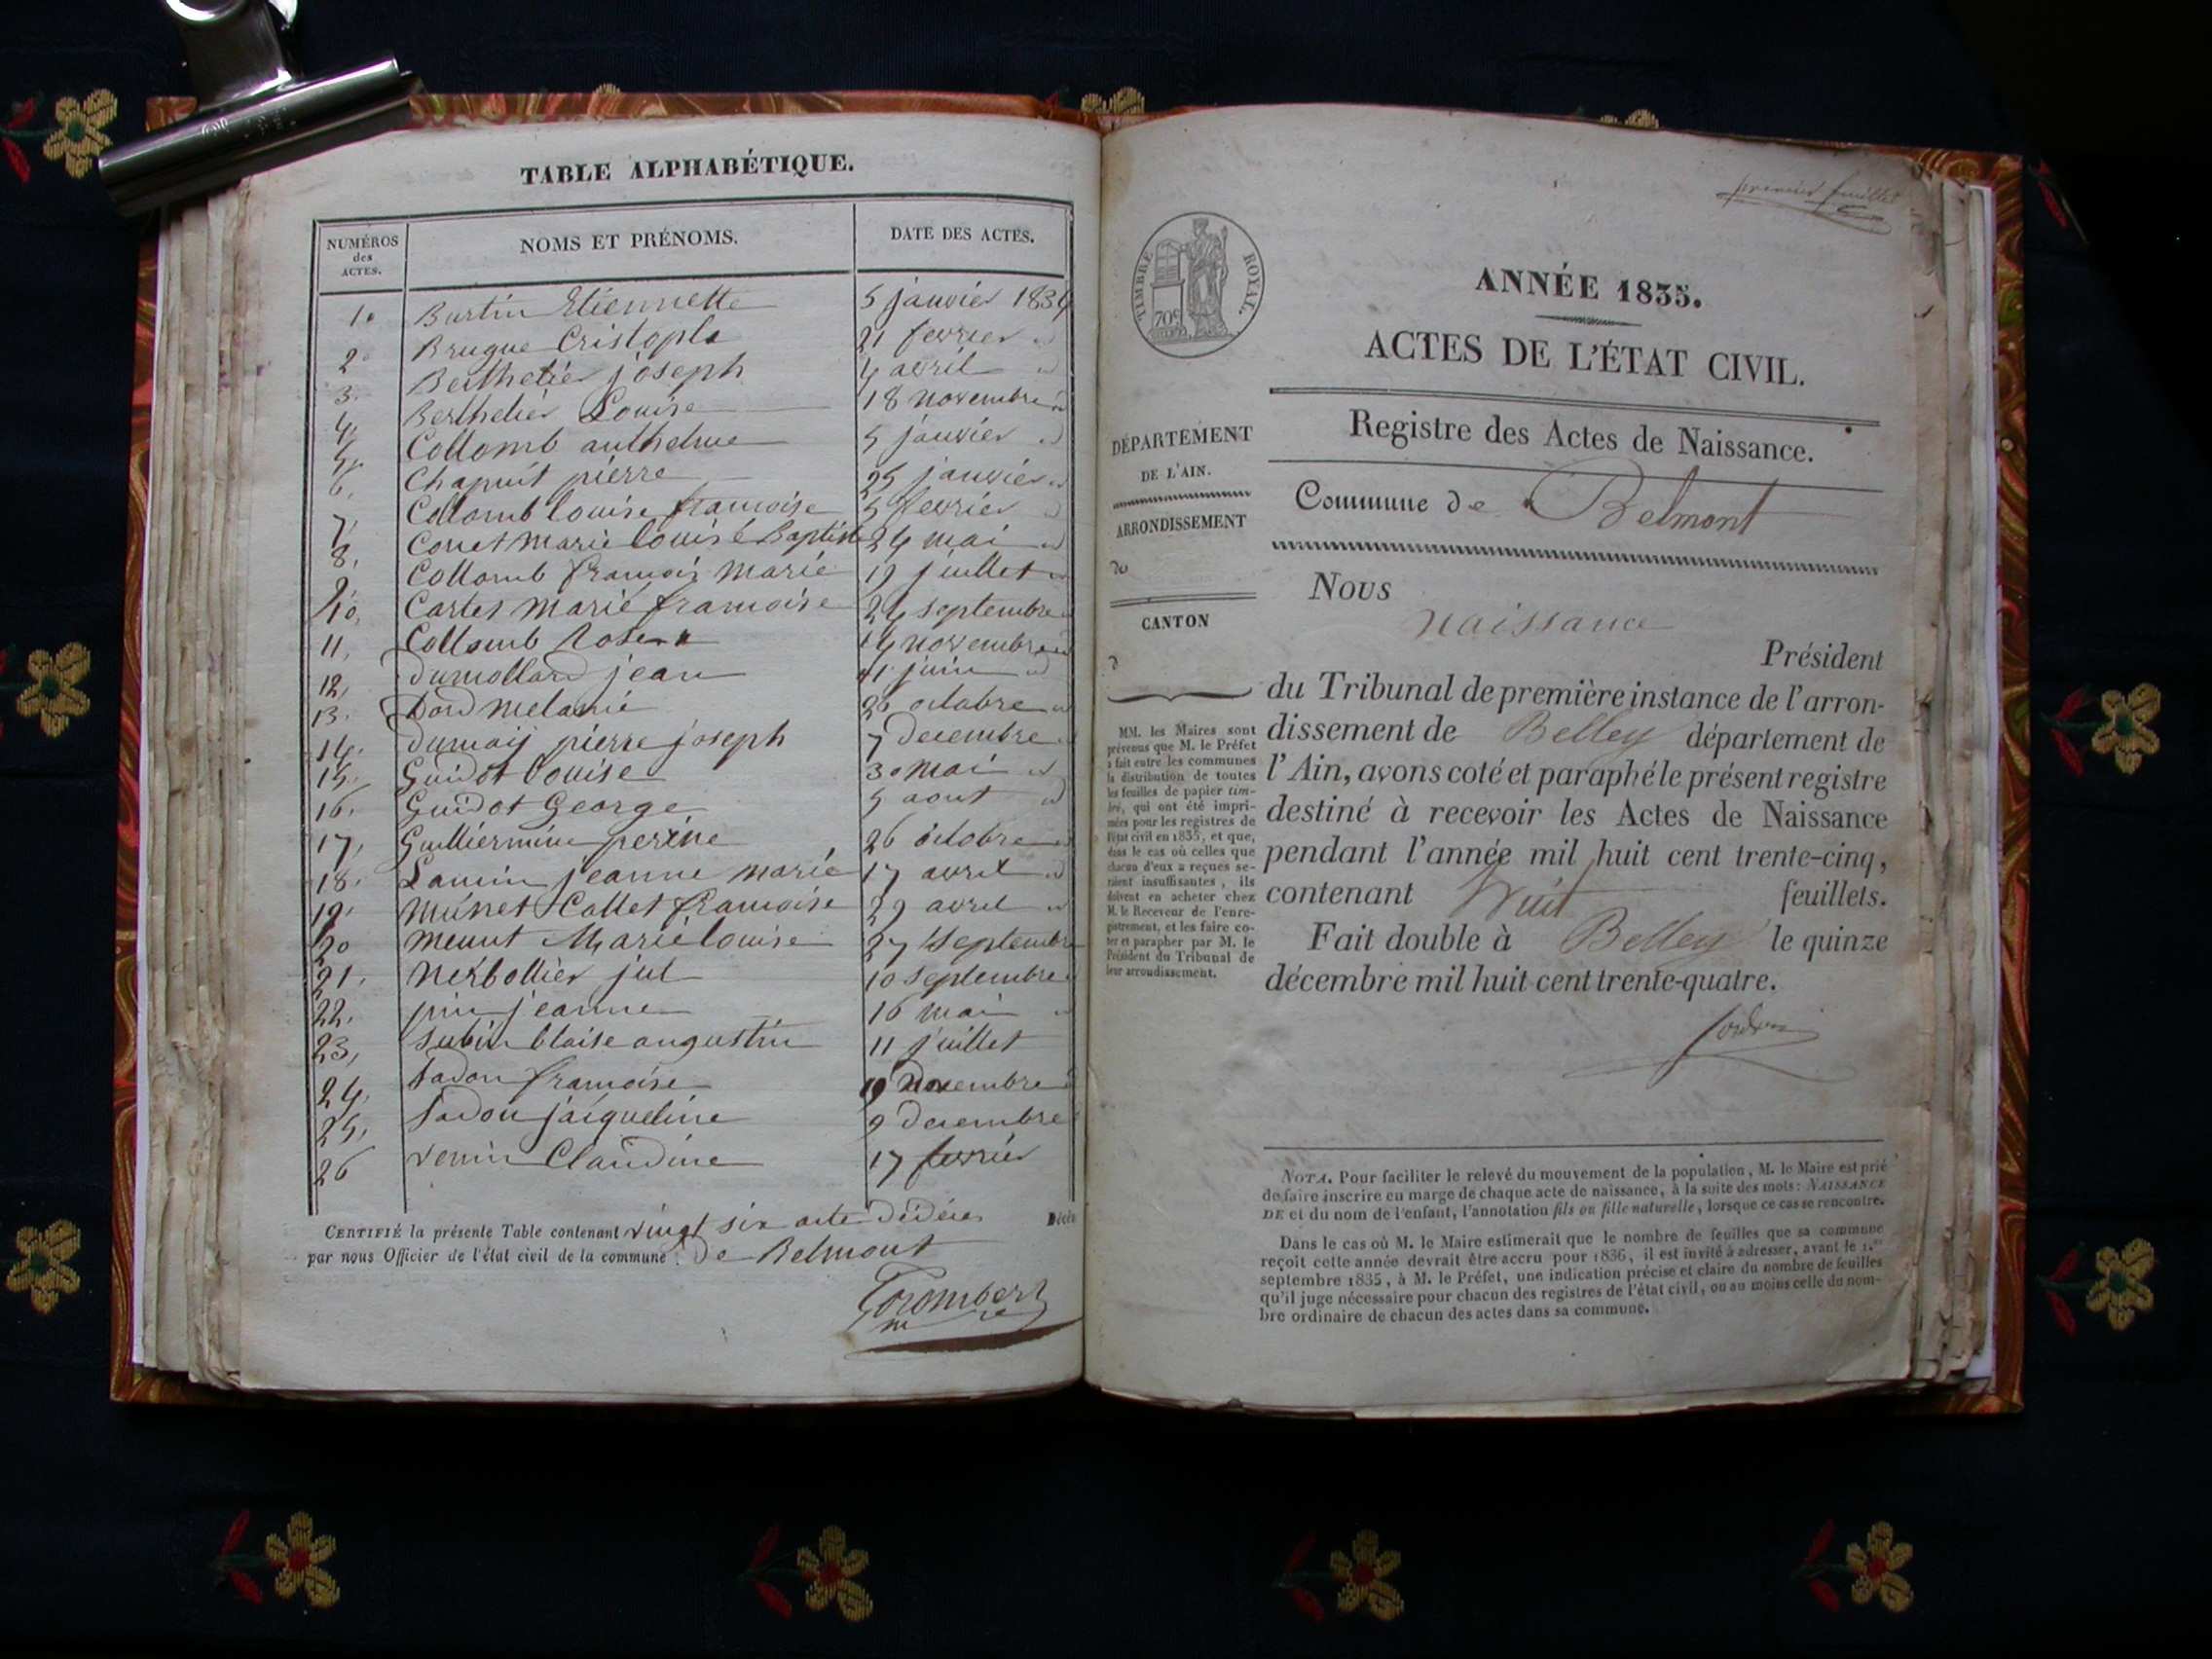 TABLE ALPHABÉTIQUE.
NUMÉROS
des
ACTES.
NOMS ET PRÉNOMS.
DATE DES ACTES.
1. Burtin Etiennette 5 janvier 1834
2. Brugue Cristople 21 fevrier
3. Berthelier joseph 4 avril
4. Berthelier Louise 18 novembre
5. Collomb anthelme 5 janvier
6. Chapuit pierre 25 janvier
7. Collomb louise francoise 5 fevrier
8. Marie louis Baptiste 24 mai
9. Collomb francois Marie 19 juillet
10. Cartet Marie francoise 24 septembre
11. Collomb Rose 14 novembre
12. Dumollard jean 11 juin
13. Dord Melanie 26 octobre
14. pierre joseph 7 decembre
15. Guidot Louise 30 mai
16. Guidot George 5 aout
17. Guilliermin perine 26 octobre
18. Lamin jeanne marie 17 avril
19. Munet Collet francoise 29 avril
20 Marie louise 27 septembre
21. Nerbollier jul 10 septembre
22. pin jeanne 16 mai
23. Subin blaise augustin 11 juillet
24. Tadon francoise novembre
25. Tadon jaiqueline 9 decembre
26 Venin Claudine 17 fevrier
CERTIFIÉ la présente Table contenant vingt six acte dédéces Décès
par nous Officier de l'état civil de la commune de Belmont
premier feuillet
TIMBRE ROYAL.
70c
ANNÉE 1835.
ACTES DE L'ÉTAT CIVIL.
Registre des Actes de Naissance.
Commune de Belmont
DÉPARTEMENT
DE L'AIN.
ARRONDISSEMENT
de
CANTON
d
MM. les Maires sont
prévenus que M. le Préfet
a fait entre les communes
la distribution de toutes
les feuilles de papier tim-
bré, qui ont été impri-
mées pour les registres de
l'état civil en 1835, et que,
dans le cas où celles que
chacun d'eux a reçues se-
raient insuffisantes, ils
doivent en acheter chez
M. le Receveur de l'enre-
gistrement, et les faire co-
ter et parapher par M. le
Président du Tribunal de
leur arrondissement.
Nous
naissance
Président
du Tribunal de première instance de l'arron-
dissement de Belley département de
l'Ain, avons coté et paraphé le présent registre
destiné à recevoir les Actes de Naissance
pendant l'année mil huit cent trente-cinq,
contenant huit feuillets.
Fait double à Belley le quinze
décembre mil huit cent trente-quatre.
NOTA. Pour faciliter le relevé du mouvement de la population, M. le Maire est prié
de faire inscrire en marge de chaque acte de naissance, à la suite des mots: NAISSANCE
DE et du nom de l'enfant, l'annotation fils ou fille naturelle, lorsque ce cas se rencontre.
Dans le cas où M. le Maire estimerait que le nombre de feuilles que sa commune
reçoit cette année devrait être accru pour 1836, il est invité à adresser, avant le 1.er
septembre 1835, à M. le Préfet, une indication précise et claire du nombre de feuilles
qu'il juge nécessaire pour chacun des registres de l'état civil, ou au moins celle du nom-
bre ordinaire de chacun des actes dans sa commune.